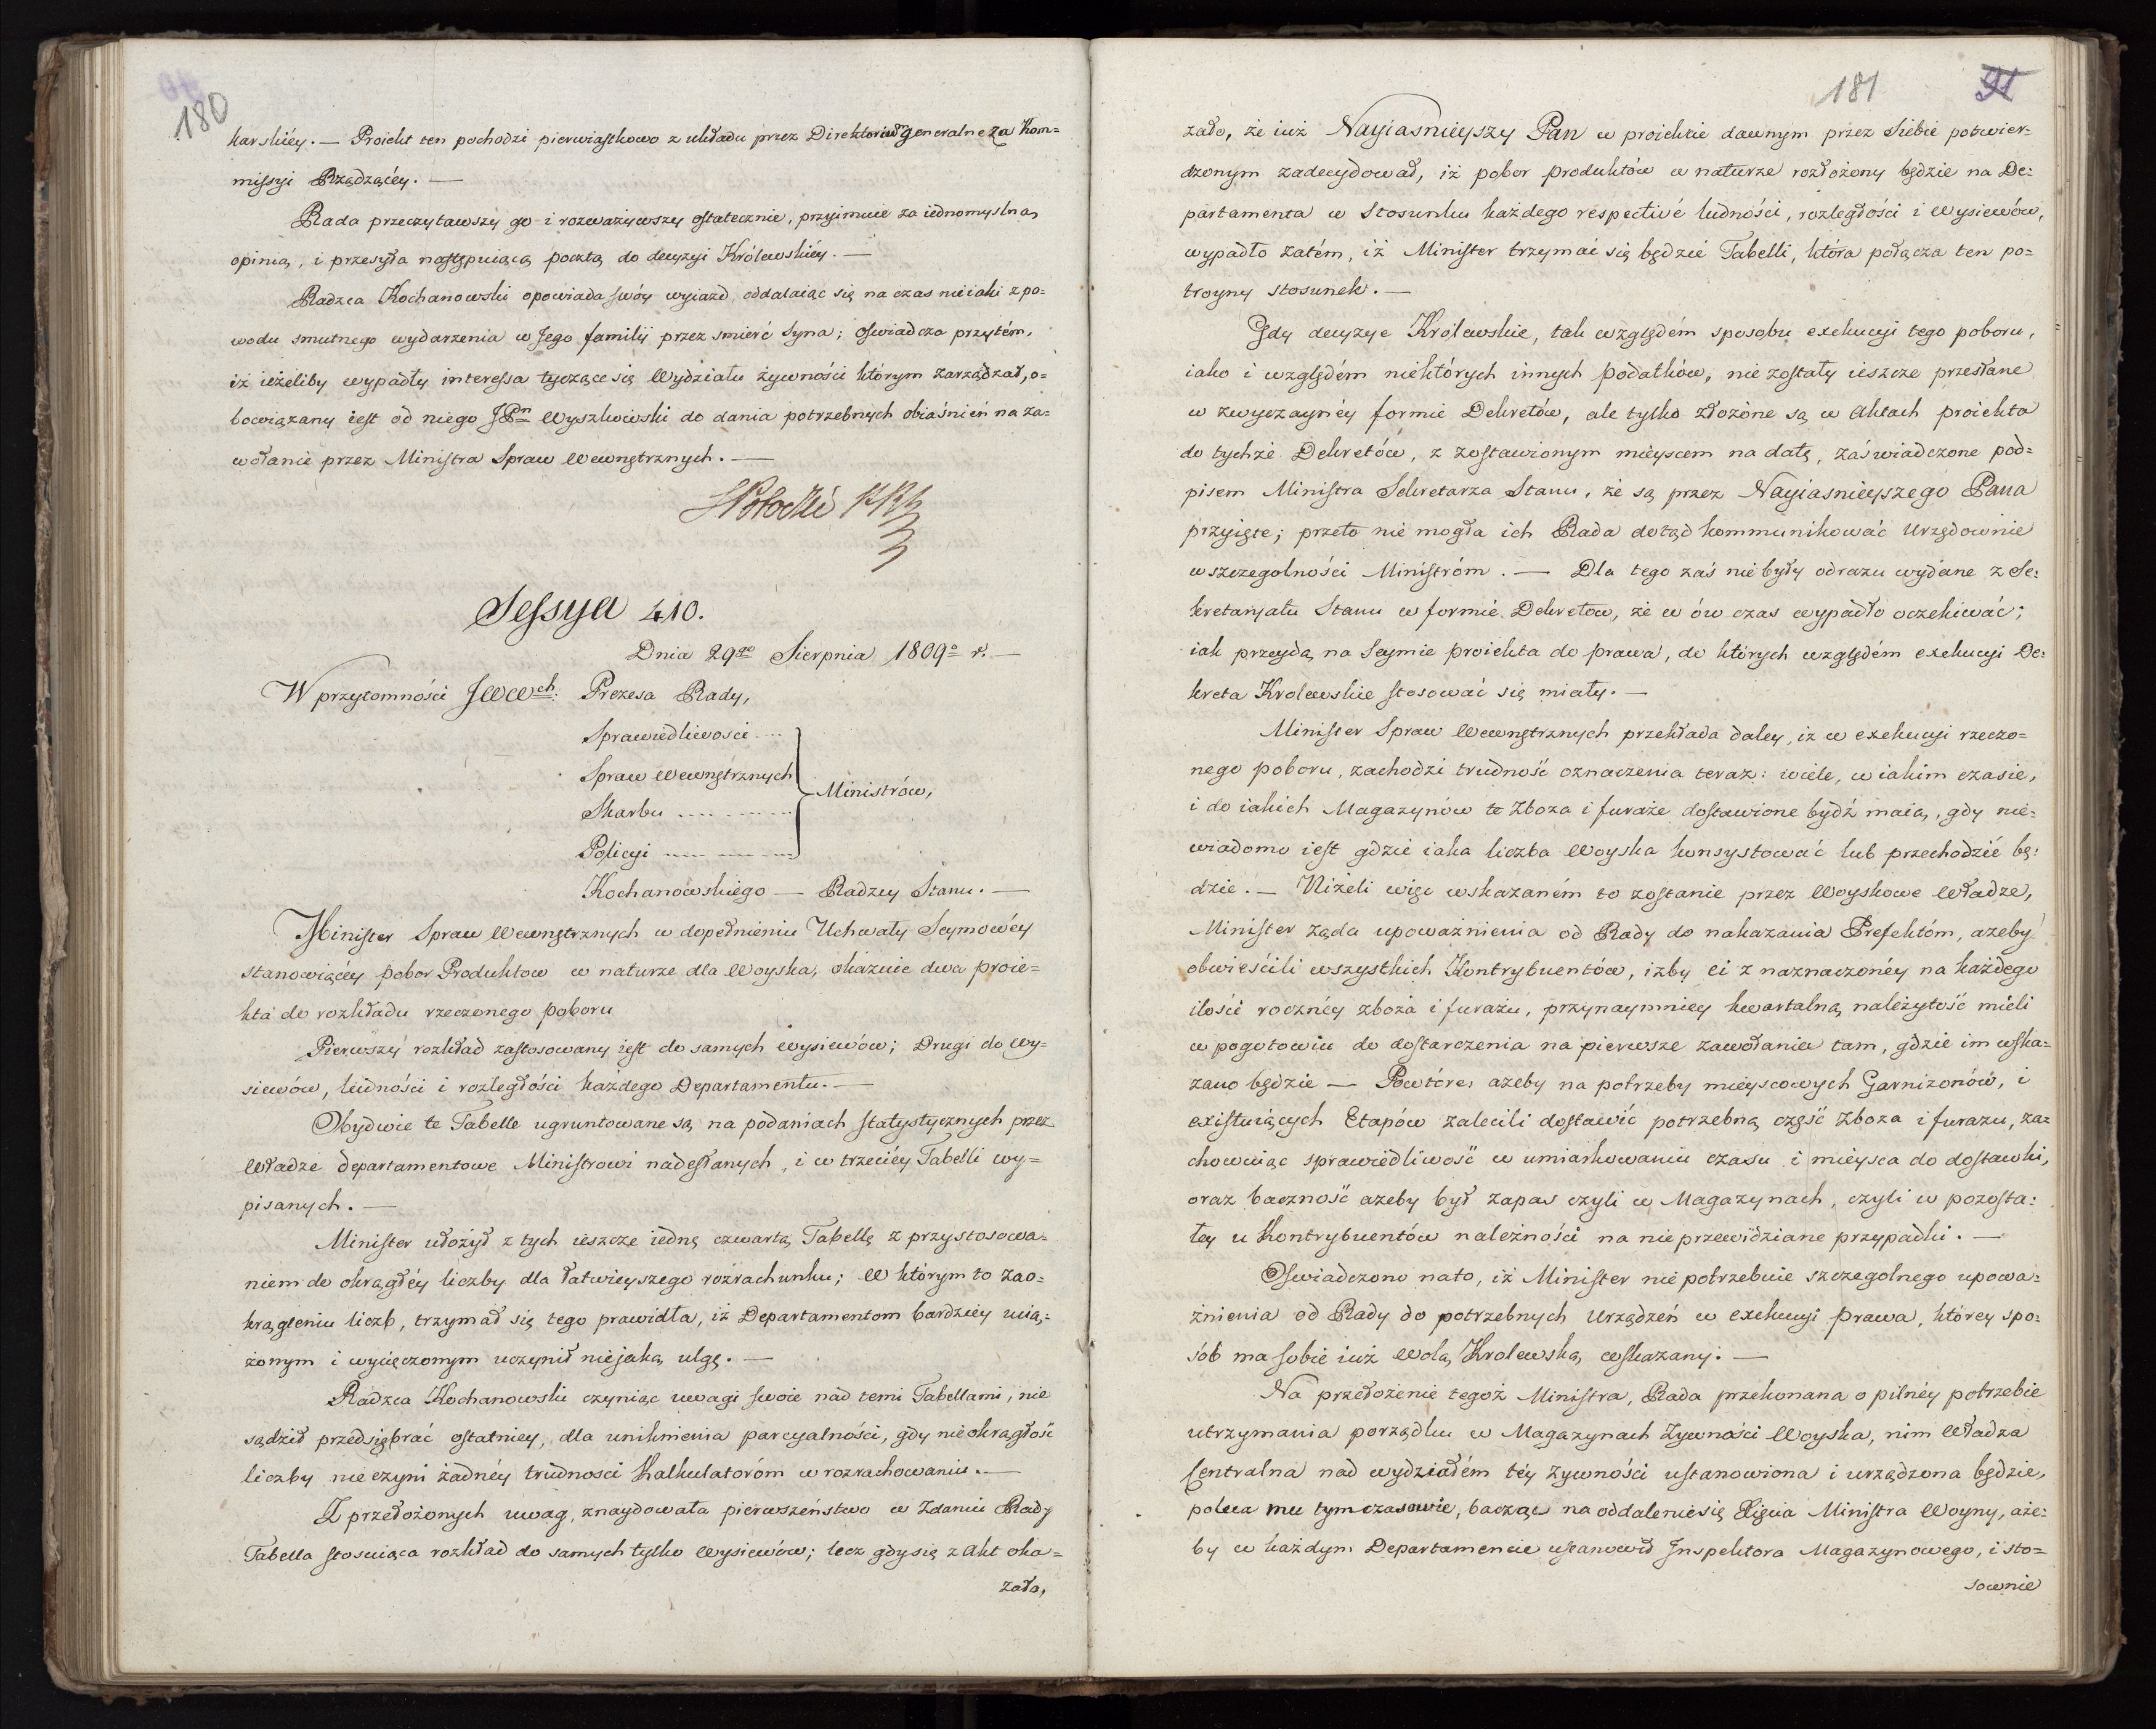 180
karskiéy. — Proiekt ten pochodzi pierwiastkowo z układu przez Direktorium generalne za Kom=
missyi Rządzącéy. —
Rada przeczytawszy go i rozważywszy ostatecznie, przyimuie za iednomyslną
opinią, i przesyła następuiącą pocztą do decyzyi Królewskiéy. —
Radzca Kochanowski opowiada swóy wyiazd, oddalaiąc się na czas nieiaki z po=
wodu smutnego wydarzenia w Jego familij przez smierć Syna; oswiadcza przytém,
iż ieżeliby wypadły interessa tyczące się Wydziału żywności którym zarządzał, o=
bowiązany iest od niego JPn Wyszkowski do dania potrzebnych obiaśnień na za=
wołanie przez Ministra Spraw Wewnętrznych. —
SPotocki PRM
Sessya 410.
Dnia 29go Sierpnia 1809o r. —
W przytomności JWWch: Prezesa Rady,
Sprawiedliwości ....
Spraw Wewnętrznych
Ministrów,
Skarbu .... .... ....
Policyi .... .... ....
Kochanowskiego — Radzcy Stanu. —
Minister Spraw Wewnętrznych w dopełnieniu Uchwały Seymowéy
stanowiącéy pobor Produktow w naturze dla Woyska, okazuie dwa proie=
kta do rozkładu rzeczonego poboru
Pierwszy rozkład zastosowany iest do samych wysiewów; Drugi do wy=
siewów, ludności i rozległości każdego Departamentu. —
Obydwie te Tabelle ugruntowane są na podaniach statystycznych przez
Władze departamentowe Ministrowi nadesłanych, i w trzeciéy Tabelli wy=
pisanych. —
Minister ułożył z tych ieszcze iedną czwartą Tabellę z przystosowa=
niem do okrągłéy liczby dla łatwieyszego rozrachunku; W którym to zao=
krągleniu liczb, trzymał się tego prawidła, iż Departamentom bardziey uią=
żonym i wycięczonym uczynił niejaką ulgę. —
Radzca Kochanowski czyniąc uwagi swoie nad temi Tabellami, nie
sądził przedsiębrać ostatniey, dla uniknienia parcyalności, gdy nieokrągłość
liczby nie czyni żadnéy trudnosci Kalkulatoróm w rozrachowaniu. —
Z przełożonych uwag, znaydowała pierwszeństwo w Zdaniu Rady
Tabella stosuiąca rozkład do samych tylko Wysiewów; lecz gdy się z Akt oka=
zało,
181
91
zało, że iuż Nayiasnieyszy Pan w proiekcie dawnym przez Siebie potwier=
dzonym zadecydował, iż pobor produktów w naturze rozłożony będzie na De=
partamenta w Stosunku każdego respectivé ludności, rozległości i Wysiewów,
wypadło zatém, iż Minister trzymać się będzie Tabelli, która połącza ten po=
troyny stosunek. —
Gdy decyzye Królewskie, tak względém sposobu exekucyi tego poboru,
iako i względém niektórych innych podatków, nie zostały ieszcze przesłane
w zwyczaynéy formie Dekretów, ale tylko złożone są w Aktach proiekta
do tychże Dekretów, z zostawionym mieyscem na datę, zaświadczone pod=
pisem Ministra Sekretarza Stanu, że są przez Nayiasnieyszego Pana
przyięte; przeto nie mogła ich Rada dotąd kommunikować Urzędownie
w szczegolności Ministróm. — Dla tego zaś nie były odrazu wydane z Se=
kretaryatu Stanu w formie Dekretow, że w ów czas wypadło oczekiwać;
iak przeydą na Seymie proiekta do prawa, do których względém exekucyi De=
kreta Krolewskie stosować się miały. —
Minister Spraw Wewnętrznych przekłada daley, iż w exekucyi rzeczo=
nego poboru, zachodzi trudność oznaczenia teraz: wiele, w iakim czasie,
i do iakich Magazynów te Zboza i furaże dostawione bydź maią, gdy nie=
wiadomo iest gdzie iaka liczba Woyska konsystować lub przechodzić bę=
dzie. — Niżeli więc wskazaném to zostanie przez Woyskowe Władze,
Minister ząda upoważnienia od Rady do nakazania Prefektóm, ażeby
obwieścili wszystkich Kontrybuentów, izby ci z naznaczonéy na każdego
ilości rocznéy zboża i furażu, przynaymniey kwartalną należytość mieli
w pogotowiu do dostarczenia na pierwsze zawołanie tam, gdzie im wska=
zano będzie — Powtóre, ażeby na potrzeby mieyscowych Garnizonów, i
existuiących Etapów zalecili dostawić potrzebną część Zboza i furazu, za=
chowuiąc sprawiedliwość w umiarkowaniu czasu i mieysca do dostawki,
oraz baczność azeby był zapas czyli w Magazynach, czyli w pozosta=
łey u Kontrybuentów należności na nieprzewidziane przypadki. —
Oswiadczono nato, iż Minister nie potrzebuie szczegolnego upowa=
żnienia od Rady do potrzebnych Urządzeń w exekucyi prawa, którey spo=
sób ma sobie iuż Wolą Krolewską wskazany. —
Na przełożenie tegoż Ministra, Rada przekonana o pilnéy potrzebie
utrzymania porządku w Magazynach Żywności Woyska, nim Władza
Centralna nad wydziałém téy żywności ustanowiona i urządzona będzie,
poleca mu tymczasowie, bacząc na oddalenie się Xięcia Ministra Woyny, aże=
by w każdym Departamencie ustanowił Inspektora Magazynowego, i sto=
sownie